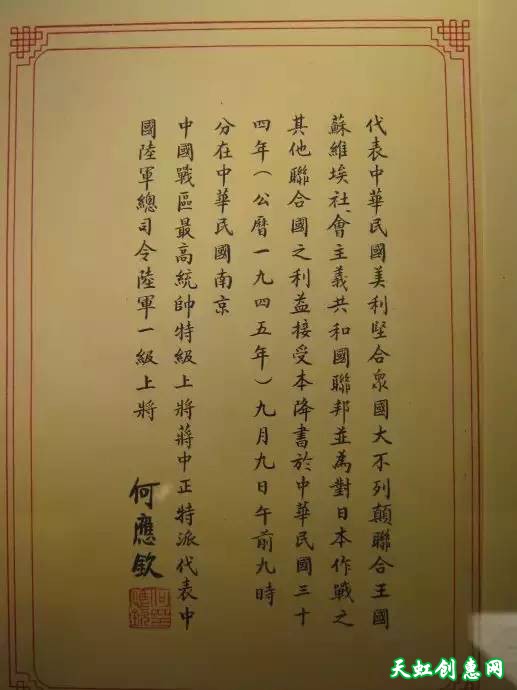 代表中華民國美利堅合眾國大不列顛聯合王國
蘇維埃社會主義共和國聯邦並為對日本作戰之
其他聯合國之利益接受本降書於中華民國三十
四年（公曆一九四五年）九月九日午前九時
分在中華民國南京
中國戰區最高統帥特級上將蔣中正特派代表中
國陸軍總司令陸軍一級上將
何應欽
何應欽印
天虹创惠网